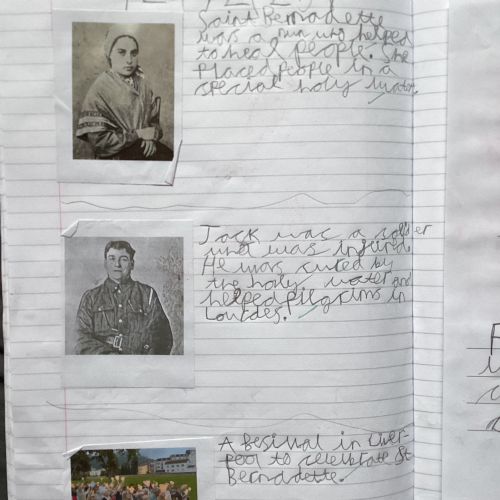 Saint Bernadette
was a nun who helped
to heal people. She
placed people in a
special holy water.
Jack was a soldier
who was injured.
He was cured by
the holy water and
helped pilgrims in
Lourdes.
A festival in Liver-
pool to celebrate St
Bernadette.